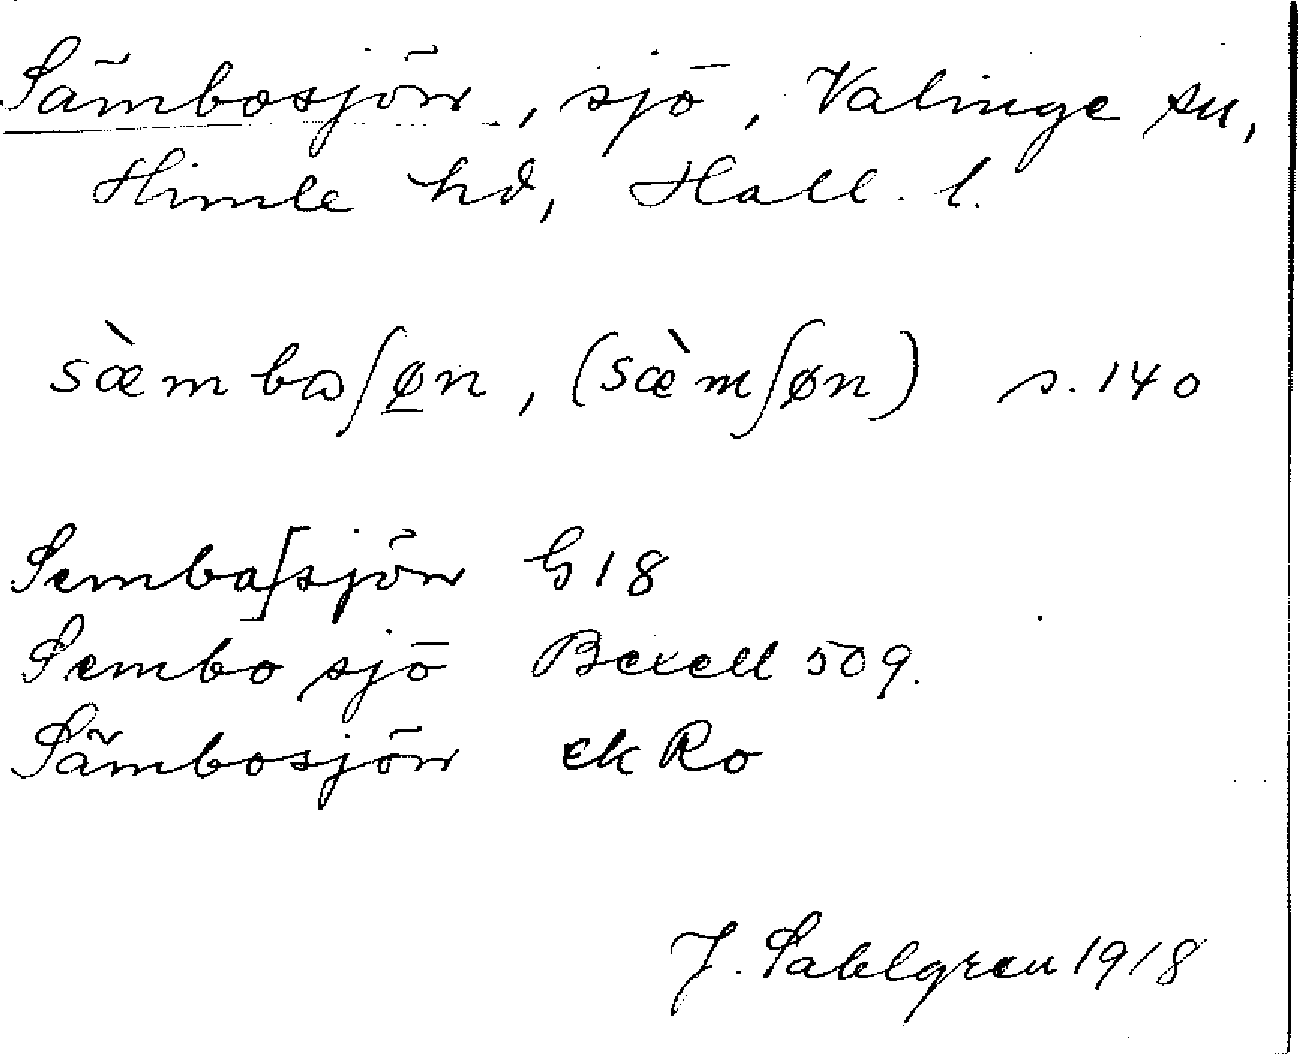 Sämbosjön, sjö, Valinge sn,
Himle hd, Hall. l.
sæ̀mbaʃøn, (sæ̀mʃøn) s. 140
Semba[sjön G18
Sembo sjö Bexell 509.
Sämbosjön ek Ro
J. Sahlgren 1918